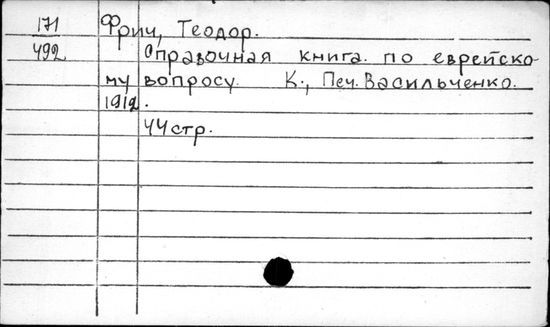 171 Фрич, Теодор.
492 Справочная книга по еврейско-
му вопросу. К., Печ. Васильченко.
1912.
44 стр.